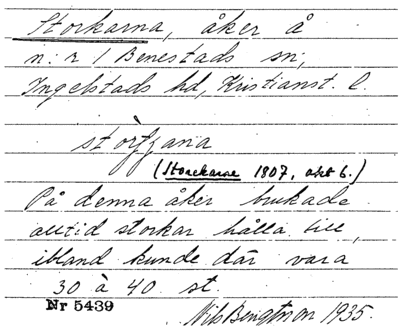 Storkarna, åker å
n:r 1 Benestads sn,
Ingelstads hd, Kristianst. l.
(Storckarne 1807, akt 6.)
På denna åker brukade
alltid storkar hålla till,
ibland kunde där vara
30 à 40 st.
Nr 5439
Nils Bengtsson 1935.